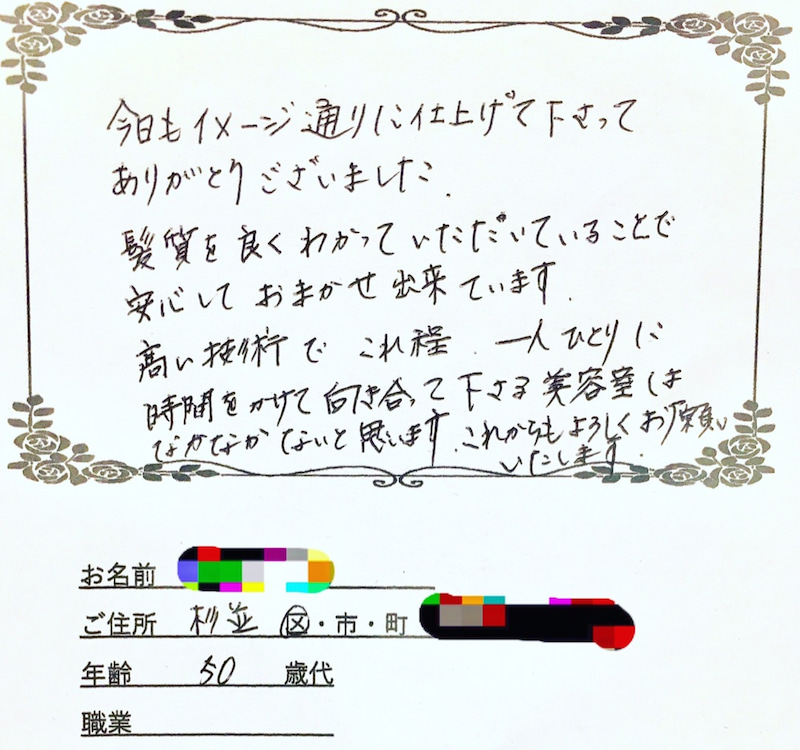 今日もイメージ通りに仕上げて下さって
ありがとうございました.
髪質を良くわかっていただいていることで
安心して おまかせ出来ています.
高い技術で これ程、一人ひとりに
時間をかけて向き合って下さる美容室は
なかなかないと思います。これからもよろしくお願い
いたします.
お名前
ご住所 杉並 区・市・町
年齢 50 歳代
職業